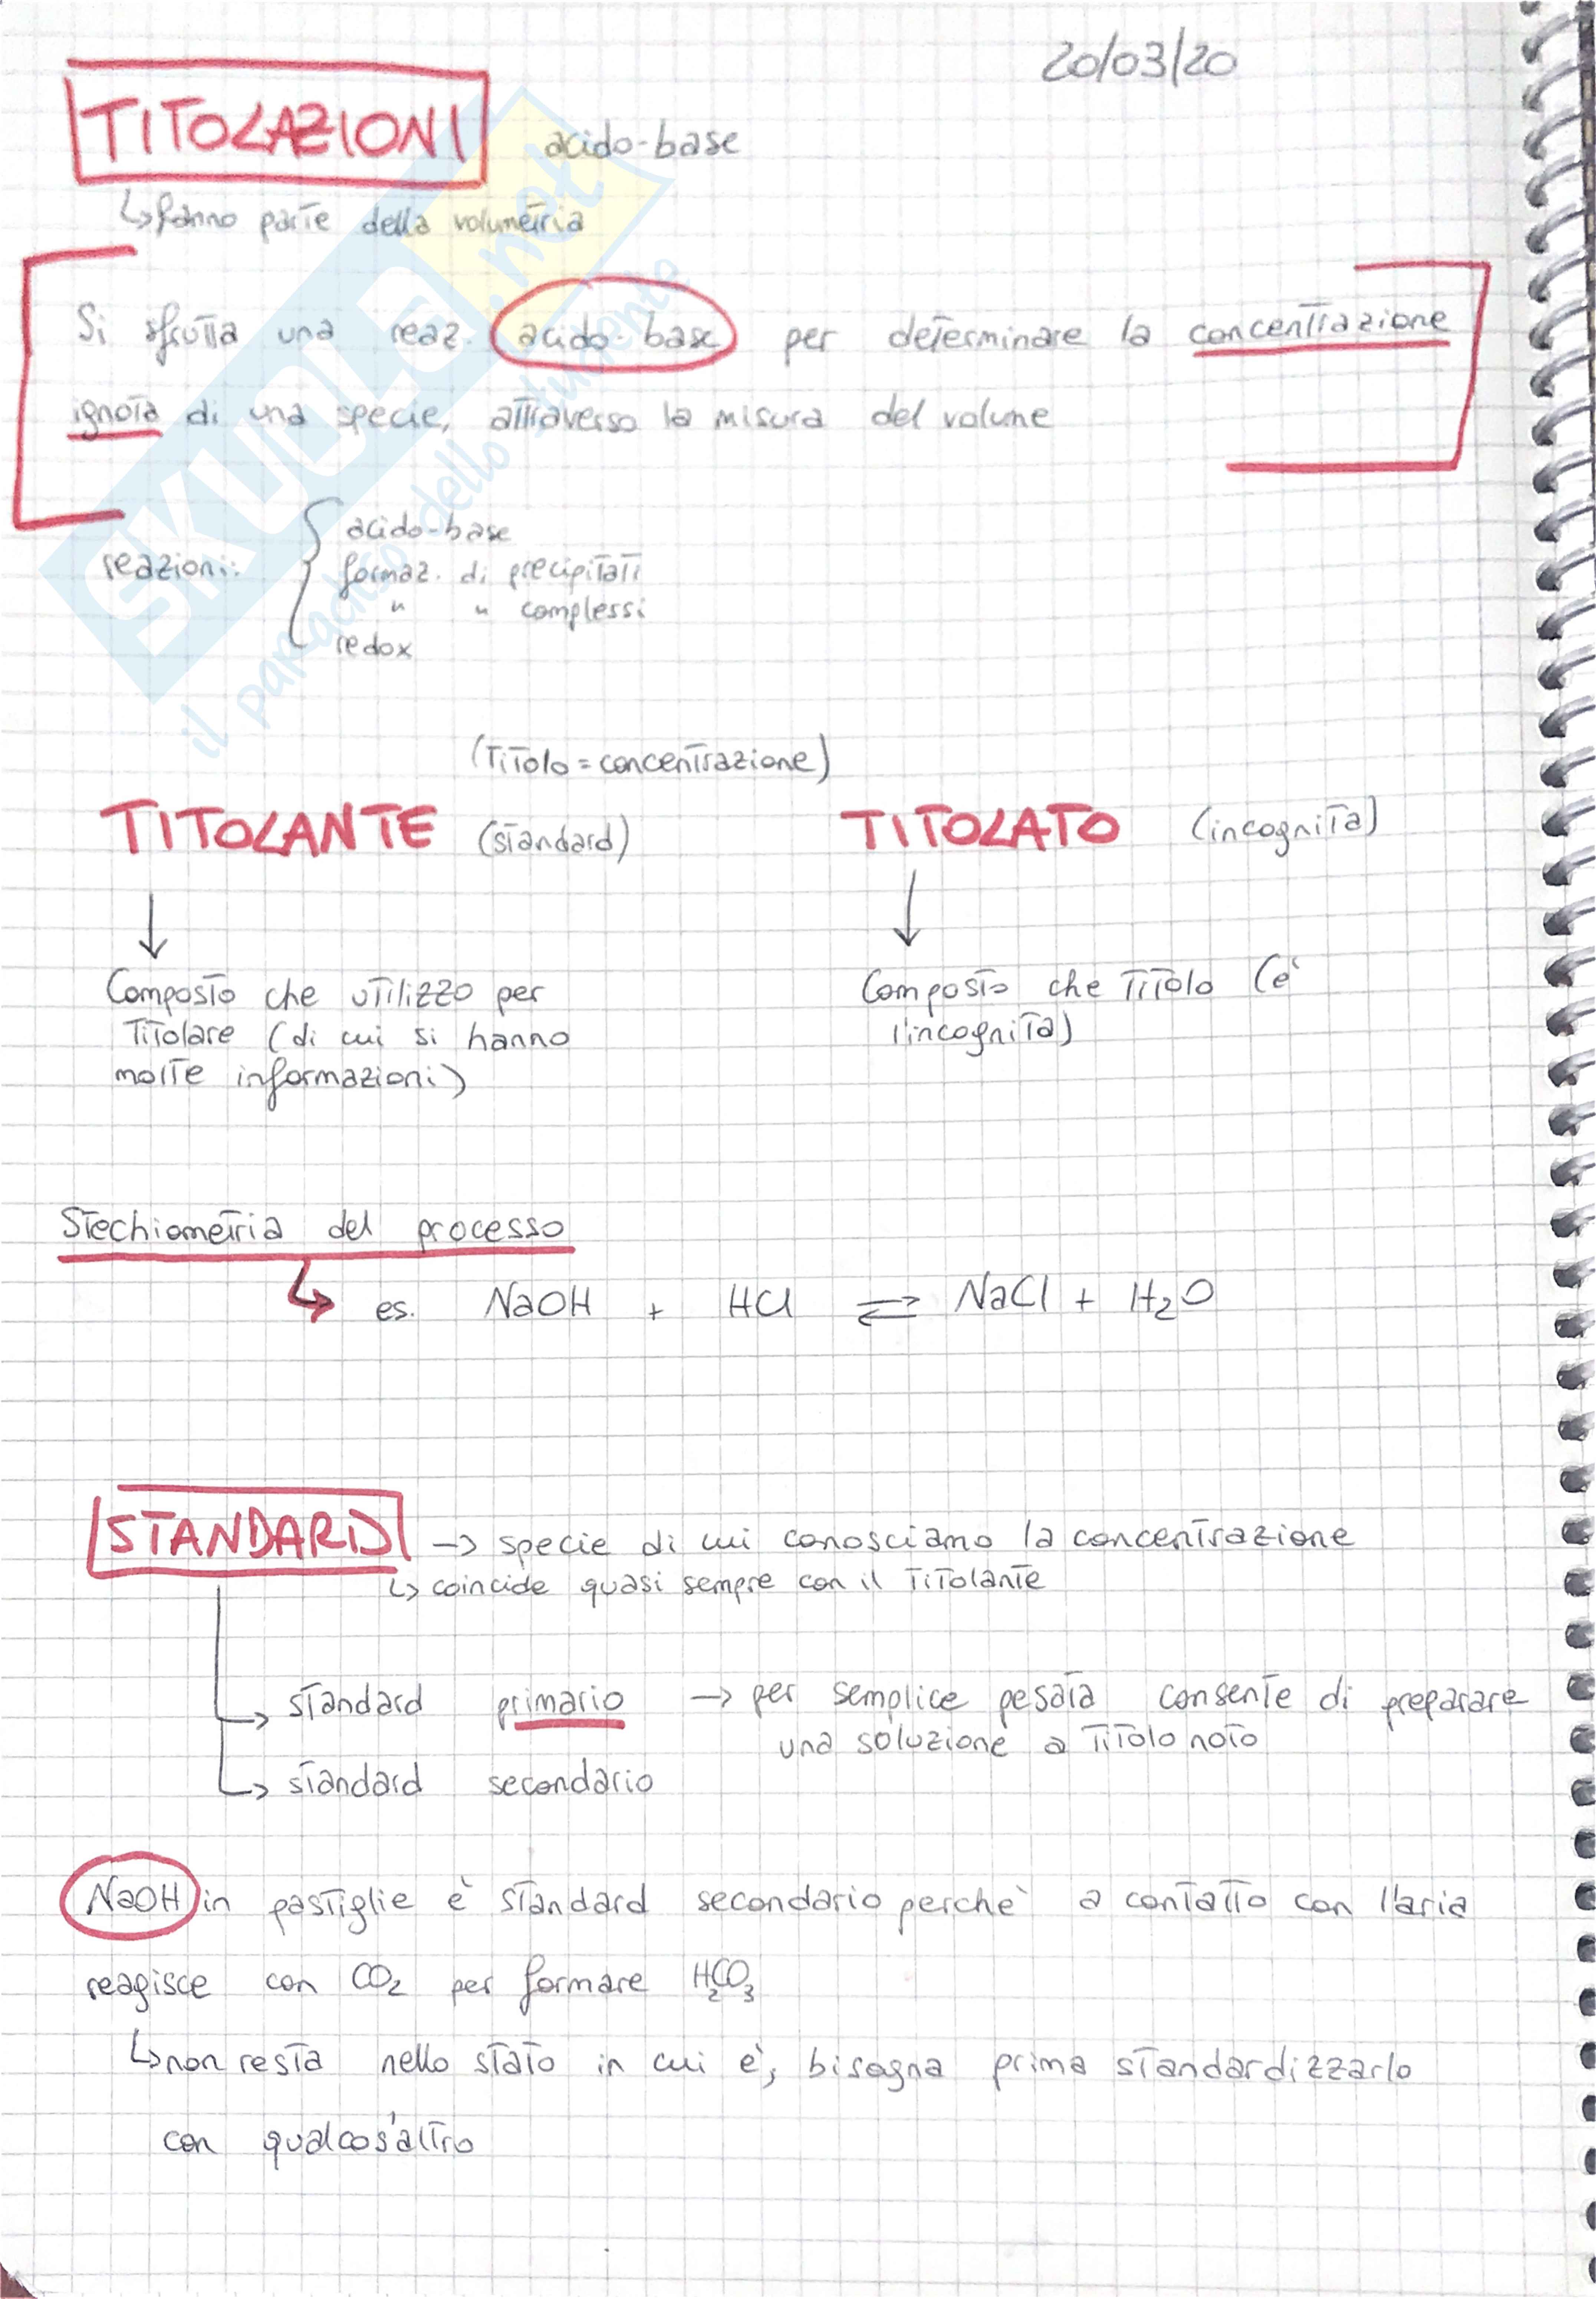 20/03/20
TITOLAZIONI acido-base
↳ fanno parte della volumetria
Si sfrutta una reaz. acido-base per determinare la concentrazione
ignota di una specie, attraverso la misura del volume
reazioni: acido-base
formaz. di precipitati
" " complessi
redox
(Titolo = concentrazione)
TITOLANTE (standard) TITOLATO (incognita)
↓ ↓
Composto che utilizzo per Composto che Titolo (è
Titolare (di cui si hanno l'incognita)
molte informazioni)
Stechiometria del processo
↳ es. NaOH + HCl ⇌ NaCl + H₂O
STANDARD → specie di cui conosciamo la concentrazione
↳ coincide quasi sempre con il Titolante
↳ standard primario → per semplice pesata consente di preparare
una soluzione a Titolo noto
↳ standard secondario
NaOH in pastiglie è standard secondario perchè a contatto con l'aria
reagisce con CO₂ per formare H₂CO₃
↳ non resta nello stato in cui è, bisogna prima standardizzarlo
con qualcos'altro
SKUOLA.net
il paradiso dello studente